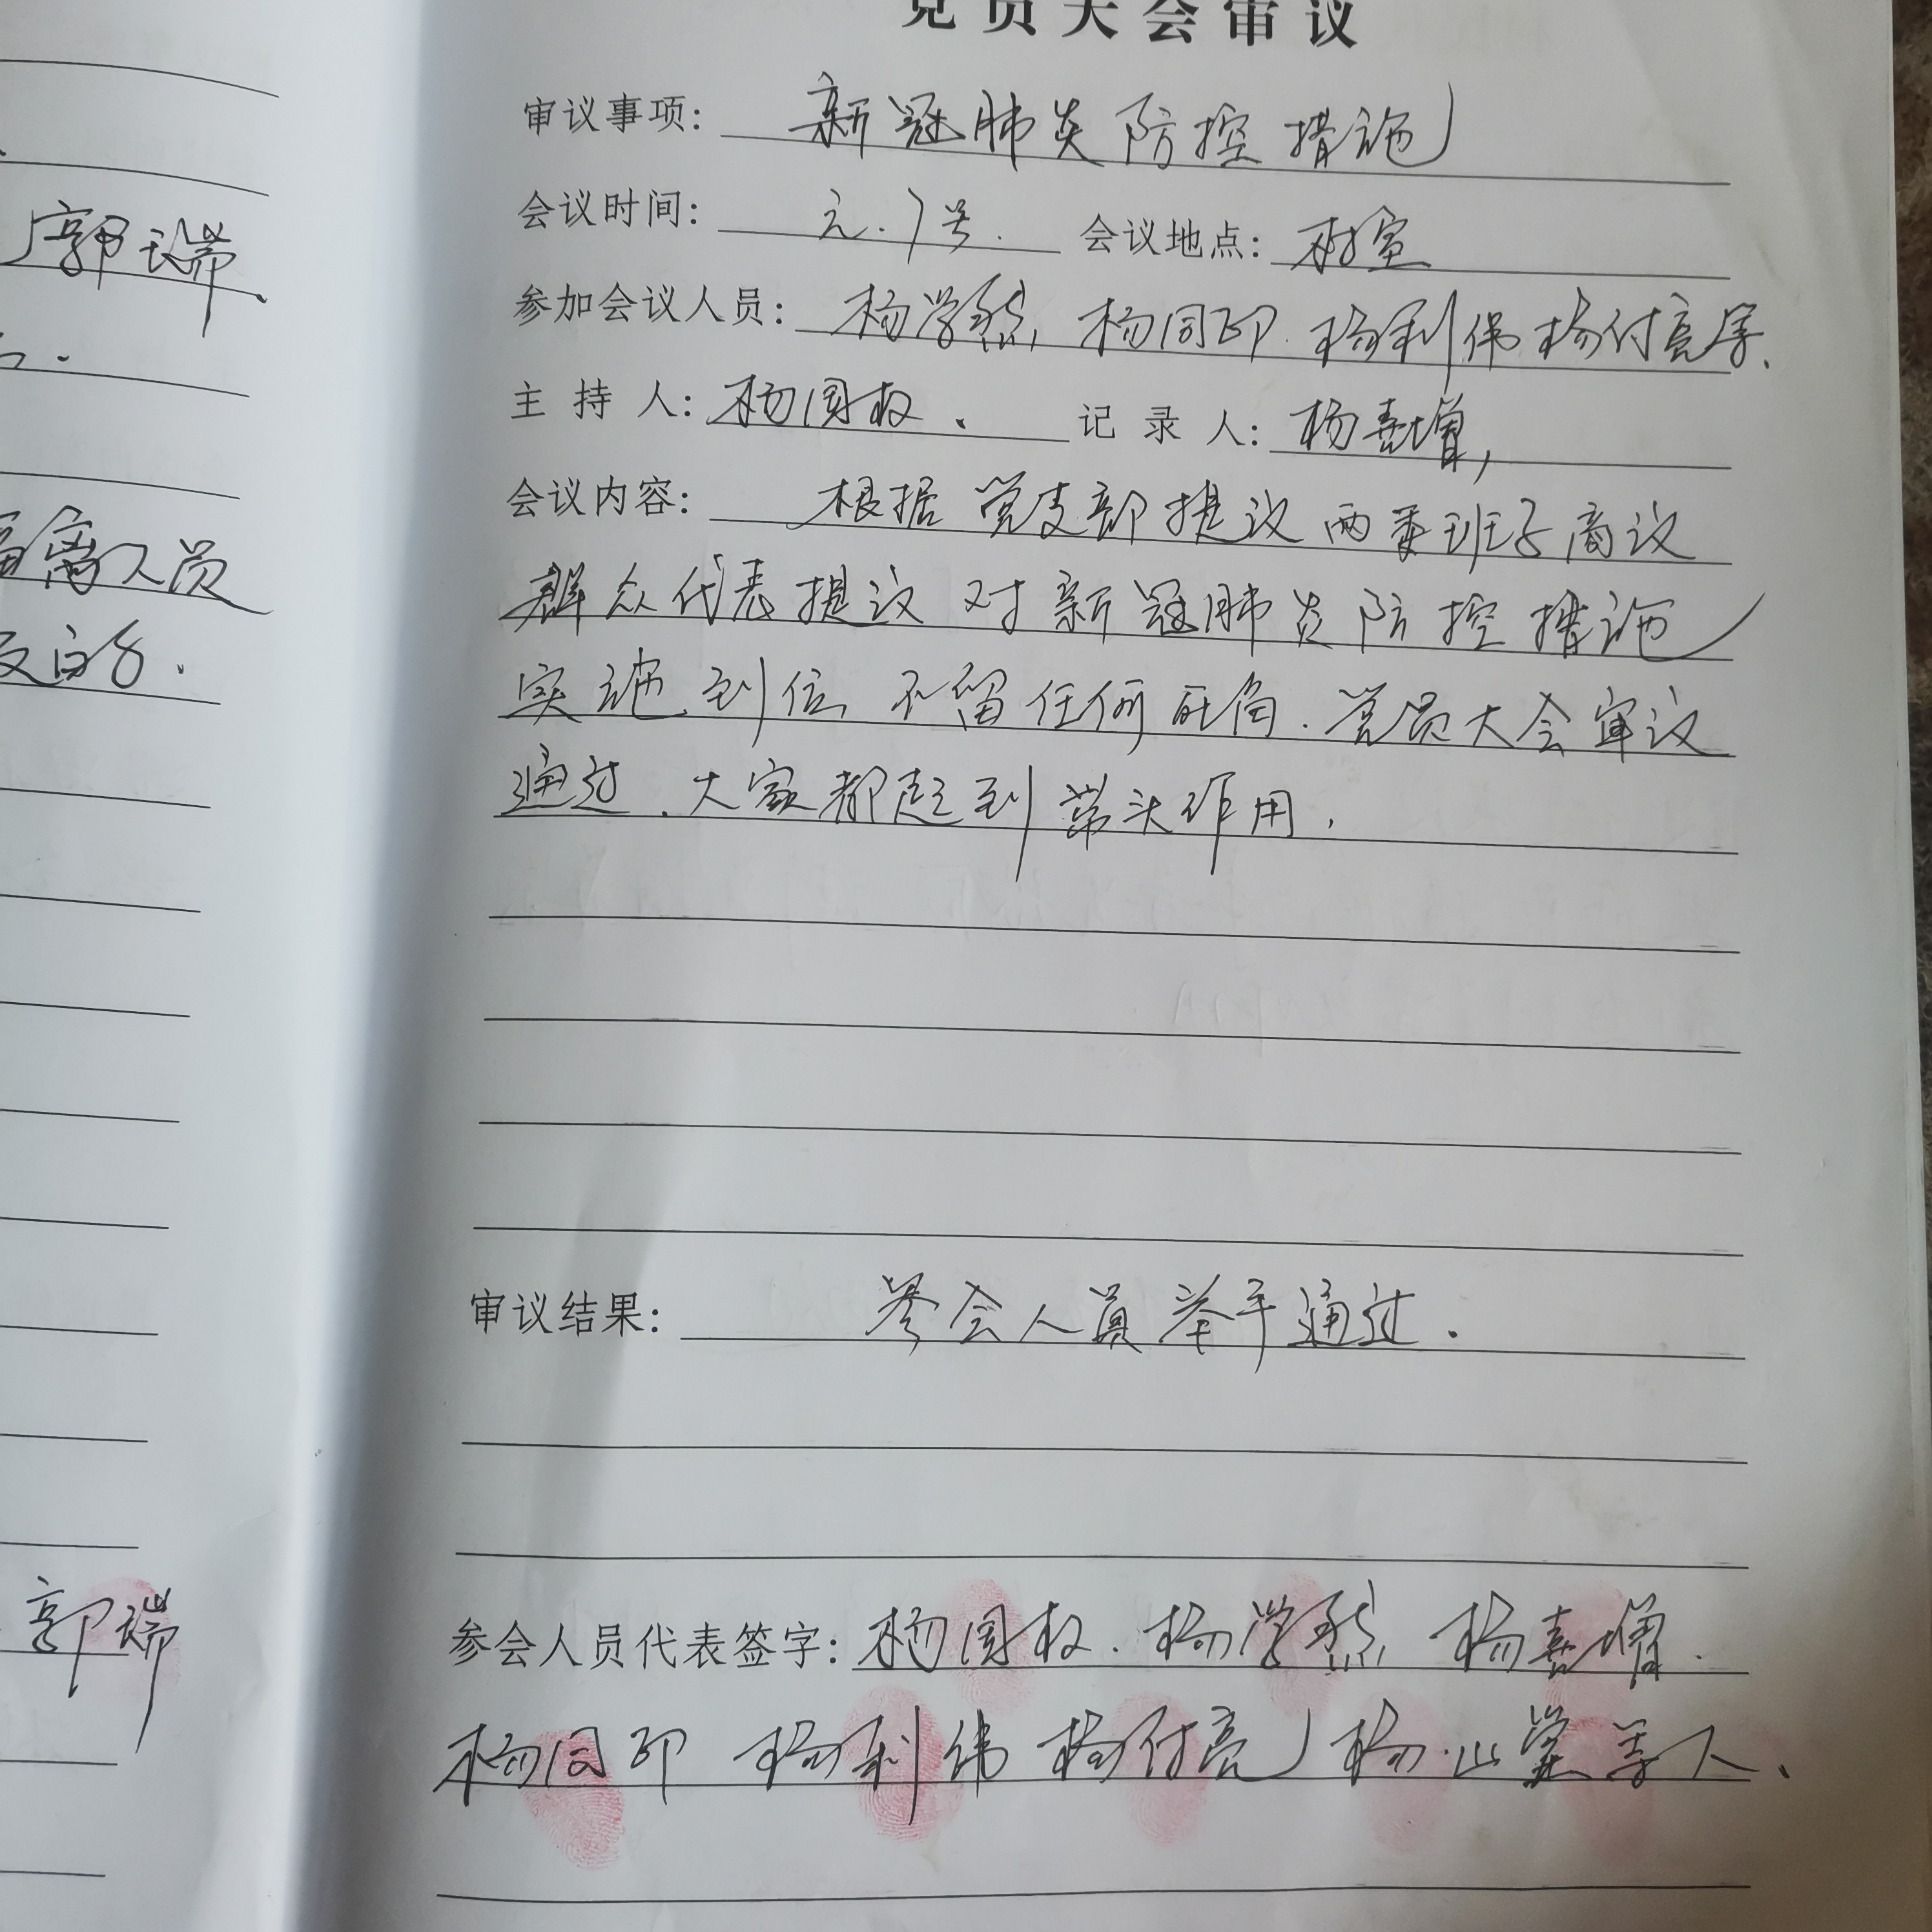 郭瑞
离人员
郭瑞
党员大会审议
审议事项: 新冠肺炎防控措施
会议时间: 元.7号. 会议地点: 村室
参加会议人员: 杨学 杨同印 杨利伟 杨付亮等、
主持人: 杨国权. 记录人: 杨喜增,
会议内容: 根据党支部提议 两委班子商议
群众代表提议 对新冠肺炎防控措施
实施到位 不留任何死角. 党员大会审议
通过. 大家都起到带头作用.
审议结果: 参会人员举手通过.
参会人员代表签字: 杨国权. 杨学 杨喜增.
杨同印 杨利伟 杨付亮 杨山 等人、